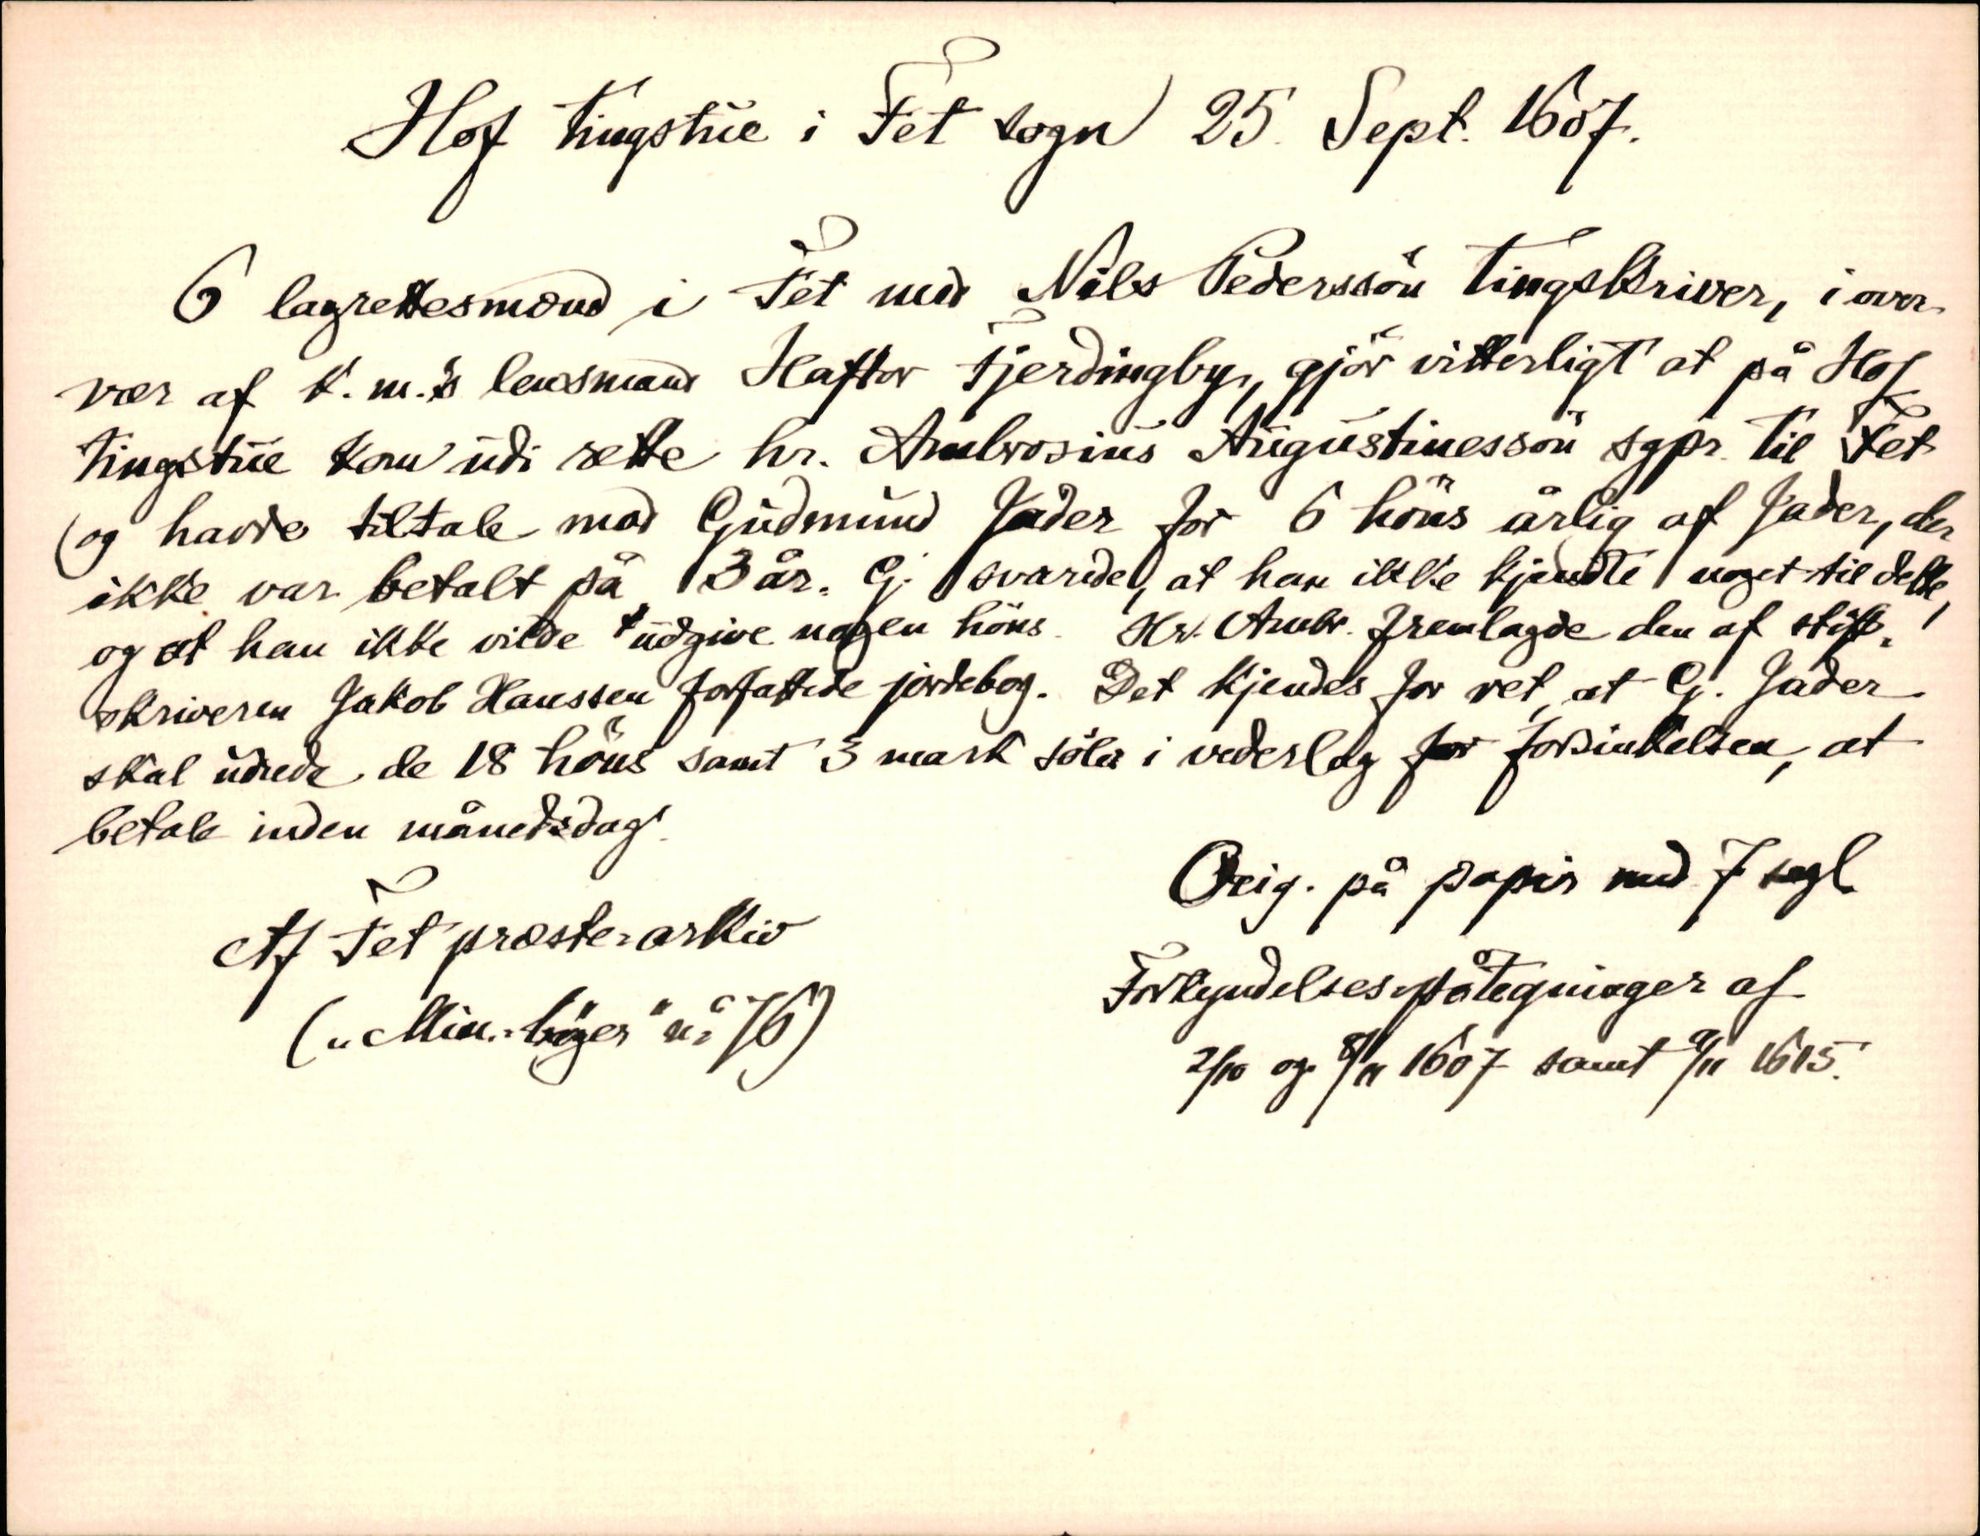 Hof tingstue i Fet sogn 25. Sept. 1607.
6 lagrettesmænd i Fet med Nils Pederssön tingskriver, i over-
vær af k. m.s lensmand Haftor Fjerdingby, gjör vitterligt at på Hof
tingstue kom udi rette hr. Ambrosius Augustinessön sgpr. til Fet
og havde tiltale mod Gudmund Jader for 6 höns årlig af Jader, der
ikke var betalt på 3 år. G. svarede, at han ikke kjendte noget til dette,
og at han ikke vilde udgive nogen höns. Hr. Ambr. fremlagde den af stift-
skriveren Jakob Hanssen forfattede jordebog. Det kjendes for ret, at G. Jader
skal udrede de 18 höns samt 3 mark sölv i vederlag for forsinkelsen, at
betale inden månedsdag.
Orig. på papir med 7 segl
Af Fet præste-arkiv
Forkyndelses-påtegninger af
(„Min.-böger" n: 76)
2/10 og 8/11 1607 samt 9/11 1615.